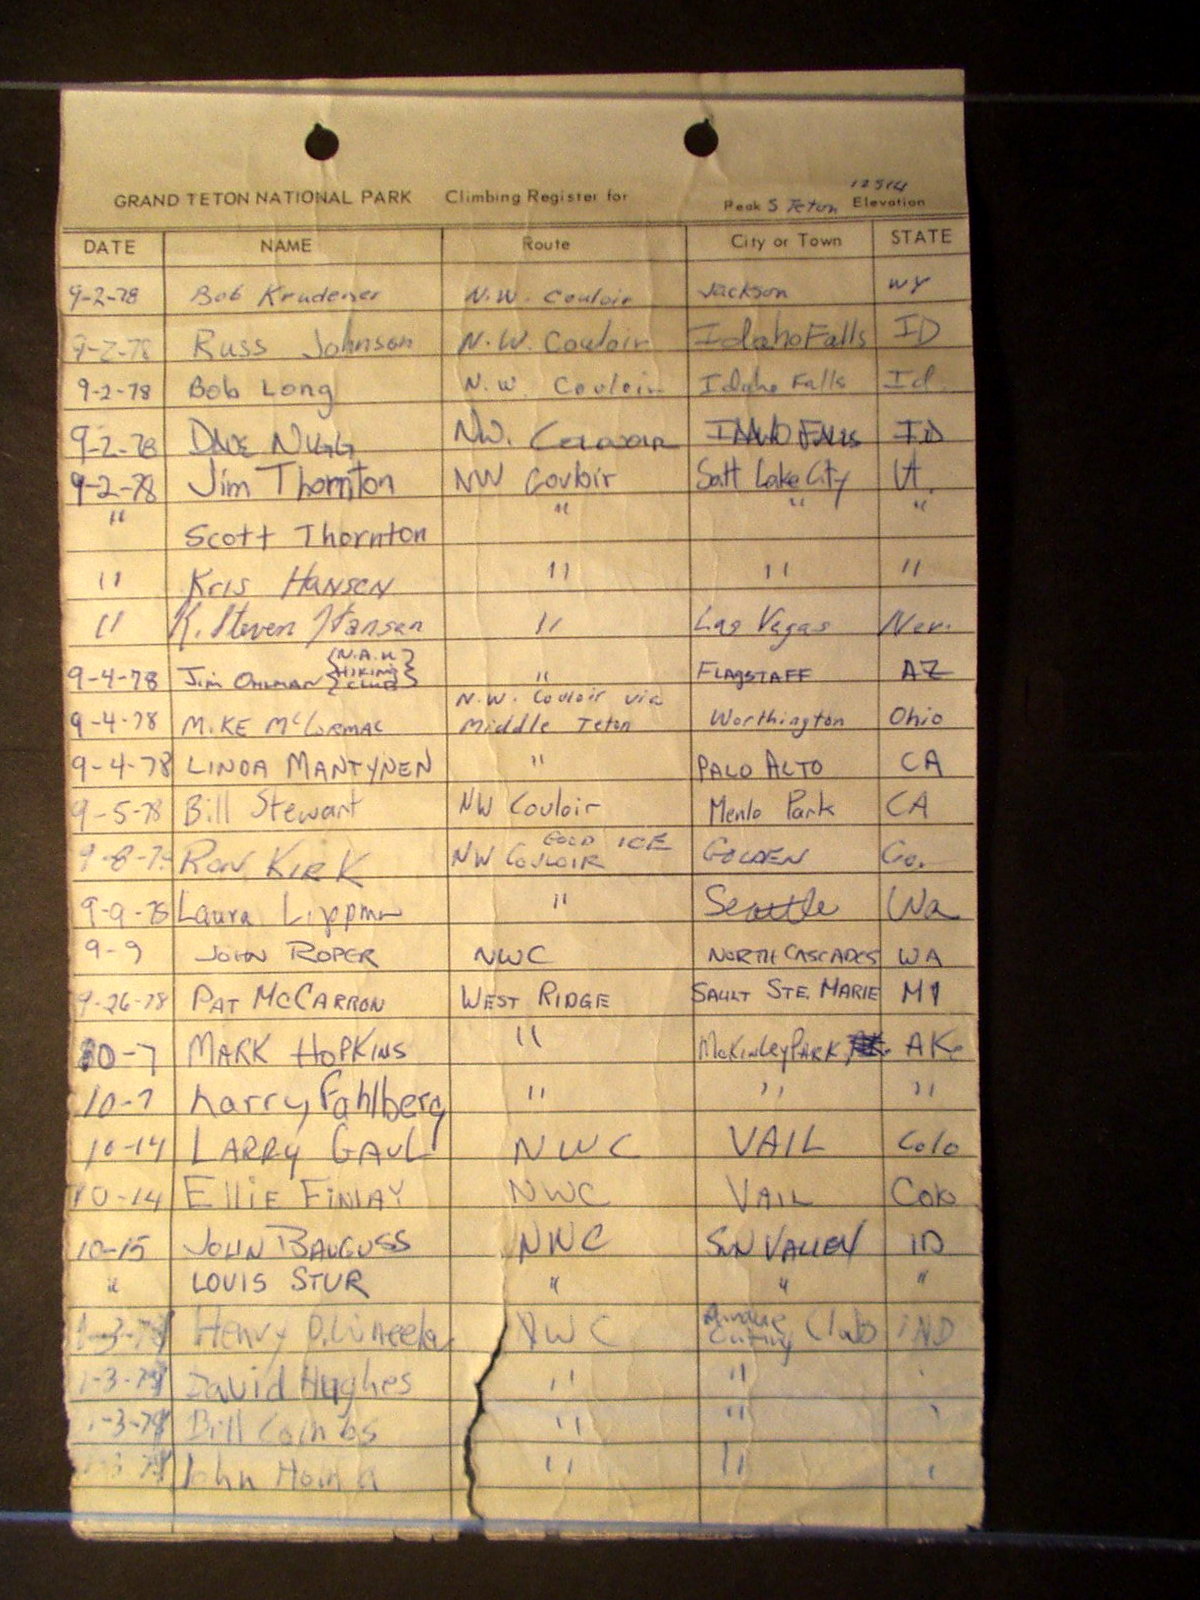 12514
GRAND TETON NATIONAL PARK Climbing Register for Peak S Teton Elevation
DATE NAME Route City or Town STATE
9-2-78 Bob Krudener N.W. Couloir Jackson WY
9-2-78 Russ Johnson N.W. Couloir Idaho Falls ID
9-2-78 Bob Long N.W. Couloir Idaho Falls Id.
9-2-78 DAVE NUGG NW. Idaho FALLS ID
9-2-78 Jim Thornton NW Couloir Salt Lake City Ut.
" Scott Thornton " " "
" Kris HANSEN " " "
" K. Steven Hansen " Las Vegas Nev.
9-4-78 Jim OHLMAN {N.A.U. HIKING CLUB} " FLAGSTAFF AZ
N.W. Couloir via
9-4-78 MIKE McCORMAC Middle Teton Worthington Ohio
9-4-78 LINDA MANTYNEN " PALO ALTO CA
9-5-78 Bill Stewart NW Couloir Menlo Park CA
GOOD ICE
9-8-78 RON KIRK NW COULOIR GOLDEN Co.
9-9-78 Laura Lippman " Seattle Wa
9-9 JOHN ROPER NWC NORTH CASCADES WA
9-26-78 PAT McCARRON WEST RIDGE SAULT STE. MARIE MI
10-7 MARK HOPKINS " McKinley PARK, AK.
10-7 Larry Fahlberg " " "
10-14 LARRY GAUL NWC VAIL Colo
10-14 ELLIE FINLAY NWC VAIL Colo
10-15 JOHN BAUGUSS NWC SUN VALLEY ID
" LOUIS STUR " " "
1-3-78 Henry D. NWC Club IND
1-3-78 David Hughes " " "
1-3-78 Bill Combs " " "
John " " "